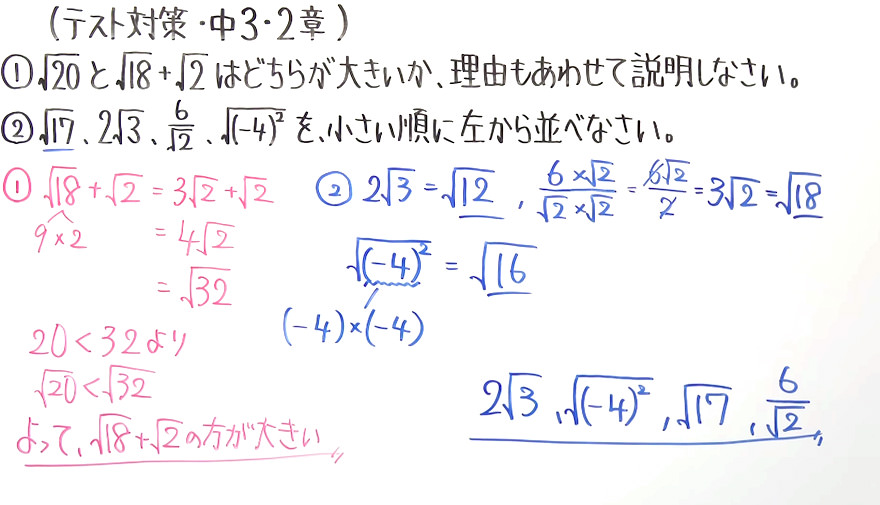 (テスト対策・中3・2章)
①√20と√18+√2はどちらが大きいか、理由もあわせて説明しなさい。
②√17、2√3、6/√2、√(-4)²を、小さい順に左から並べなさい。
① √18+√2=3√2+√2
9×2
=4√2
=√32
20<32より
√20<√32
よって、√18+√2の方が大きい
② 2√3=√12, 6×√2/√2×√2=6√2/2=3√2=√18
√(-4)²=√16
(-4)×(-4)
2√3,√(-4)²,√17,6/√2